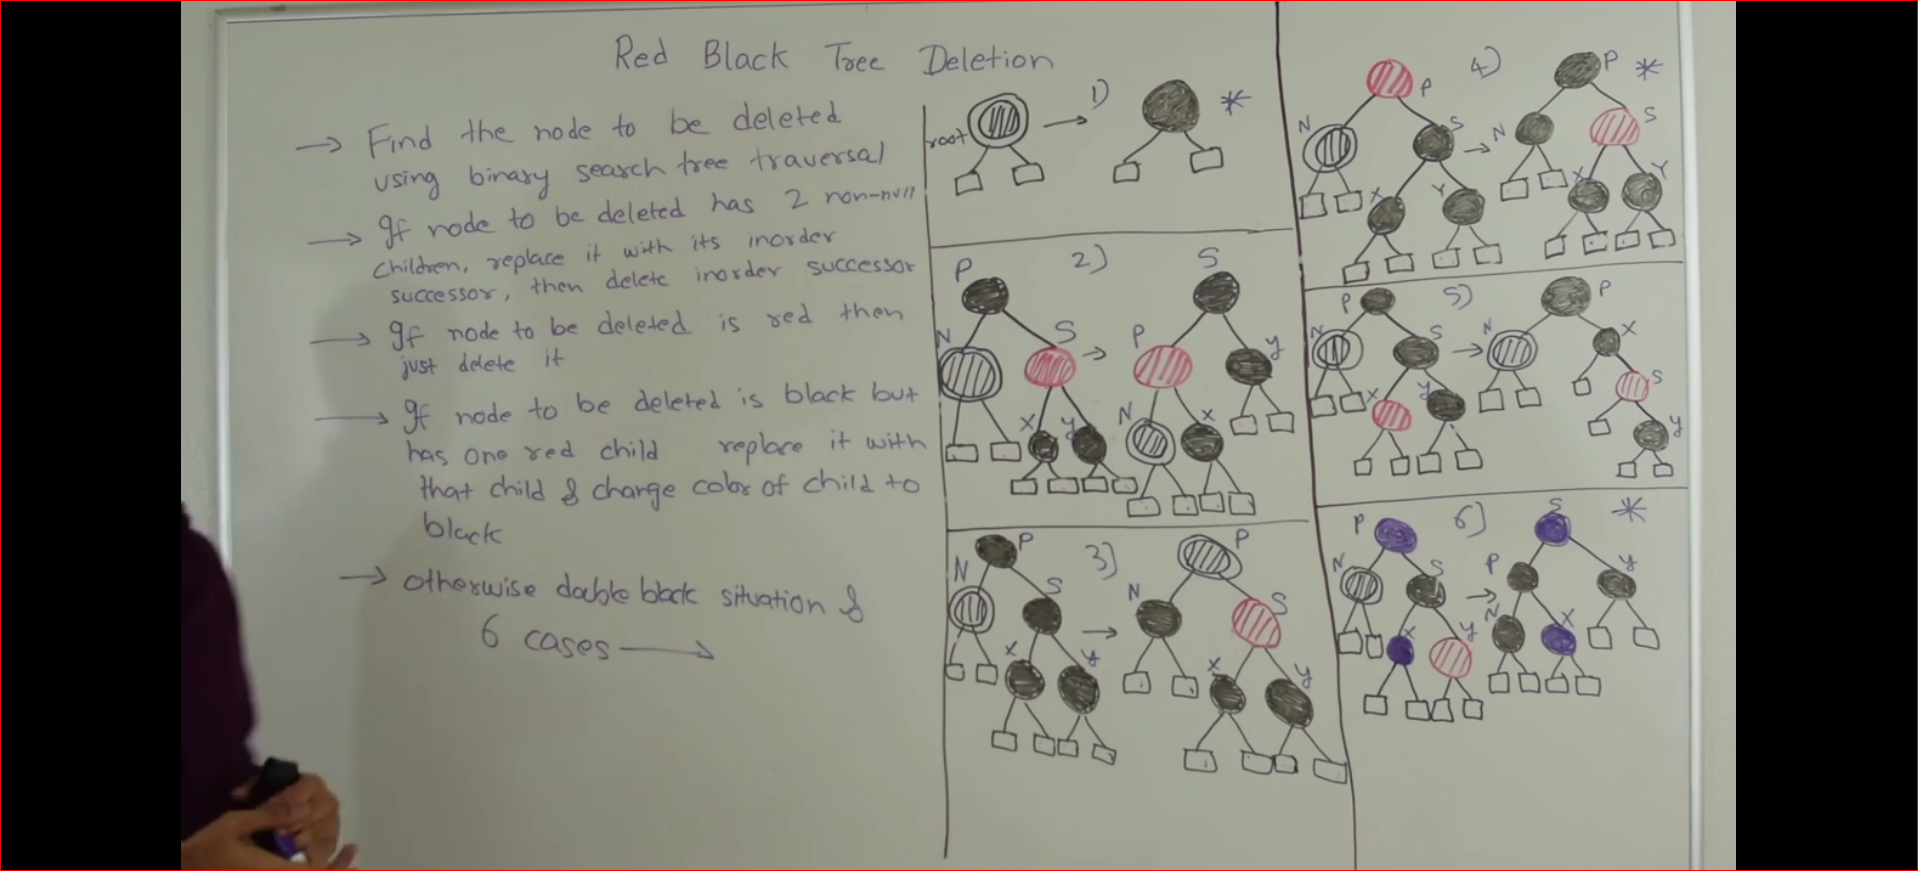 Red Black Tree Deletion
→ Find the node to be deleted
using binary search tree traversal
→ If node to be deleted has 2 non-null
children, replace it with its inorder
successor, then delete inorder successor
→ If node to be deleted is red then
just delete it
→ If node to be deleted is black but
has one red child replace it with
that child & change color of child to
black
→ otherwise double black situation &
6 cases →
1)
root → *
2)
P S
N S → P y
X y N X
3)
P P
N S → N S
X y X y
4)
P P *
N S → N S
X Y X Y
5)
P P
N S → N X
X y S
y
6)
P S *
N S → P y
X y N X